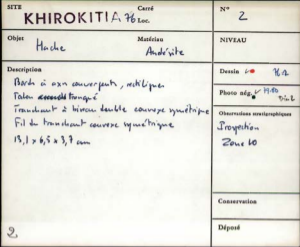 SITE
KHIROKITIA 76
Carré
Loc.
N°
2
Objet
Hache
Matériau
Andésite
NIVEAU
Dessin
762
Description
Bords à axn convergents, rectilignes
Talon tronqué
Tranchant à biseau double convexe symétrique
Fil du tranchant convexe symétrique
13,1 x 6,5 x 3,7 cm
Photo nég.
Observations stratigraphiques
Prospection
Zone 10
Conservation
Déposé
2